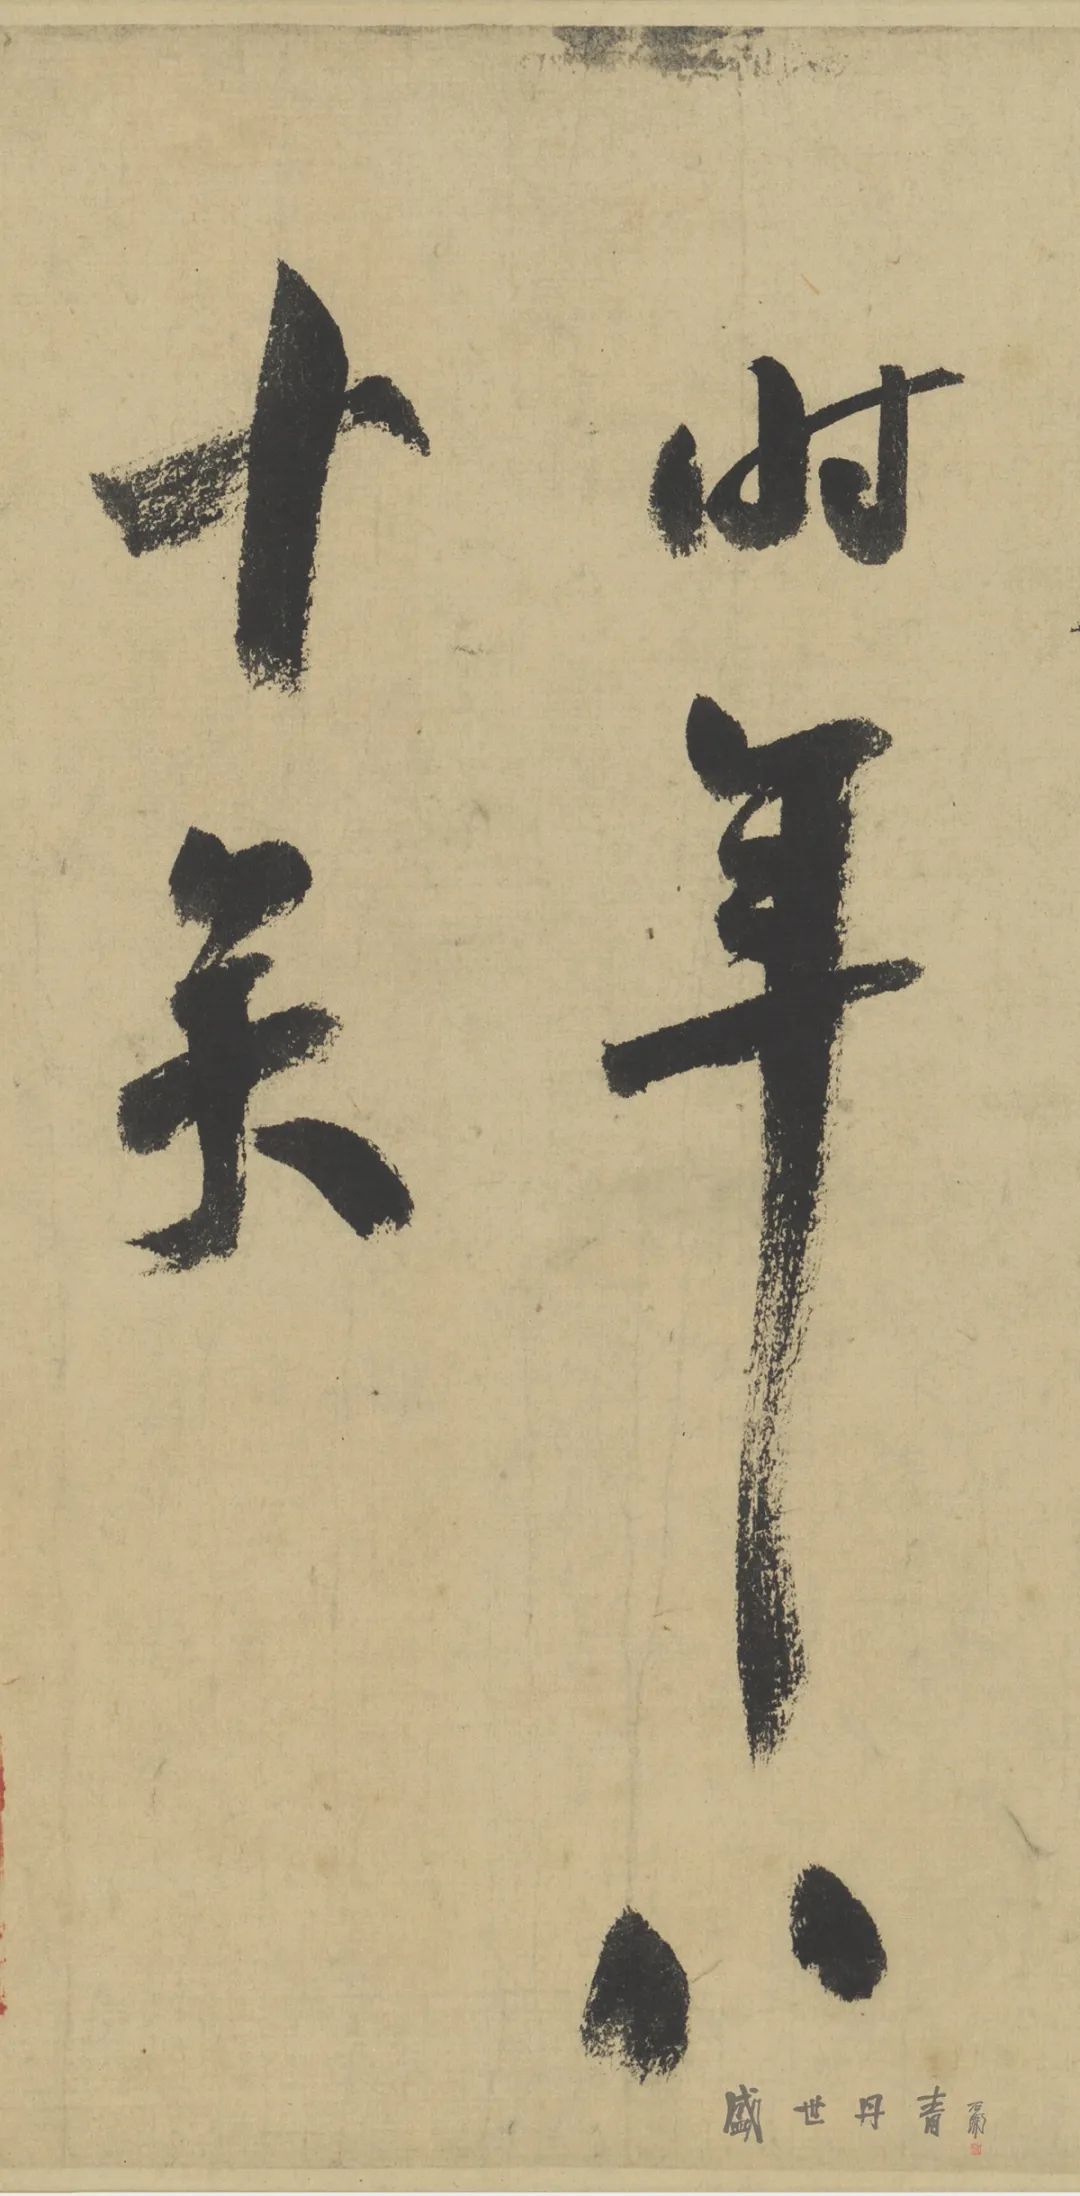 時年八
十矣
盛世丹青